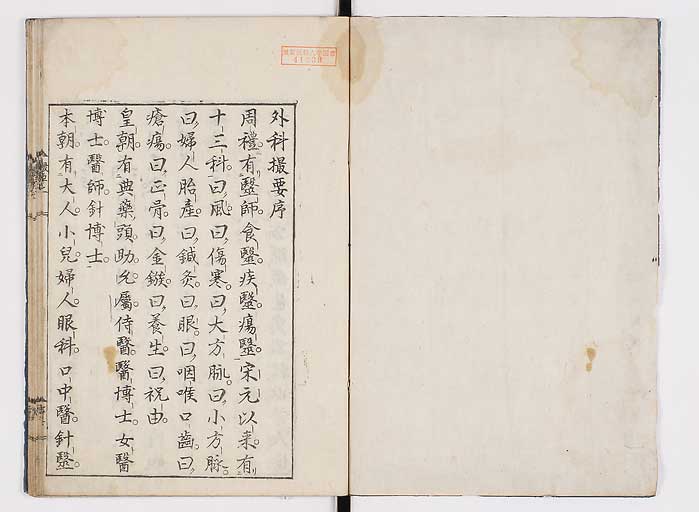 外科撮要序
周禮有醫師食醫疾醫瘍醫宋元以来有
十三科曰風曰傷寒曰大方脉曰小方脉
曰婦人胎産曰鍼灸曰眼曰咽喉口齒曰
瘡瘍曰正骨曰金鏃曰養生曰祝由
皇朝有典藥頭助允屬侍醫醫博士女醫
博士醫師針博士
本朝有大人小兒婦人眼科口中醫針醫